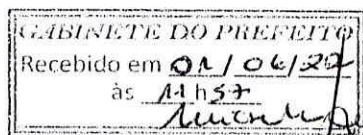 GABINETE DO PREFEITO
Recebido em 01/06/20
às 11h57